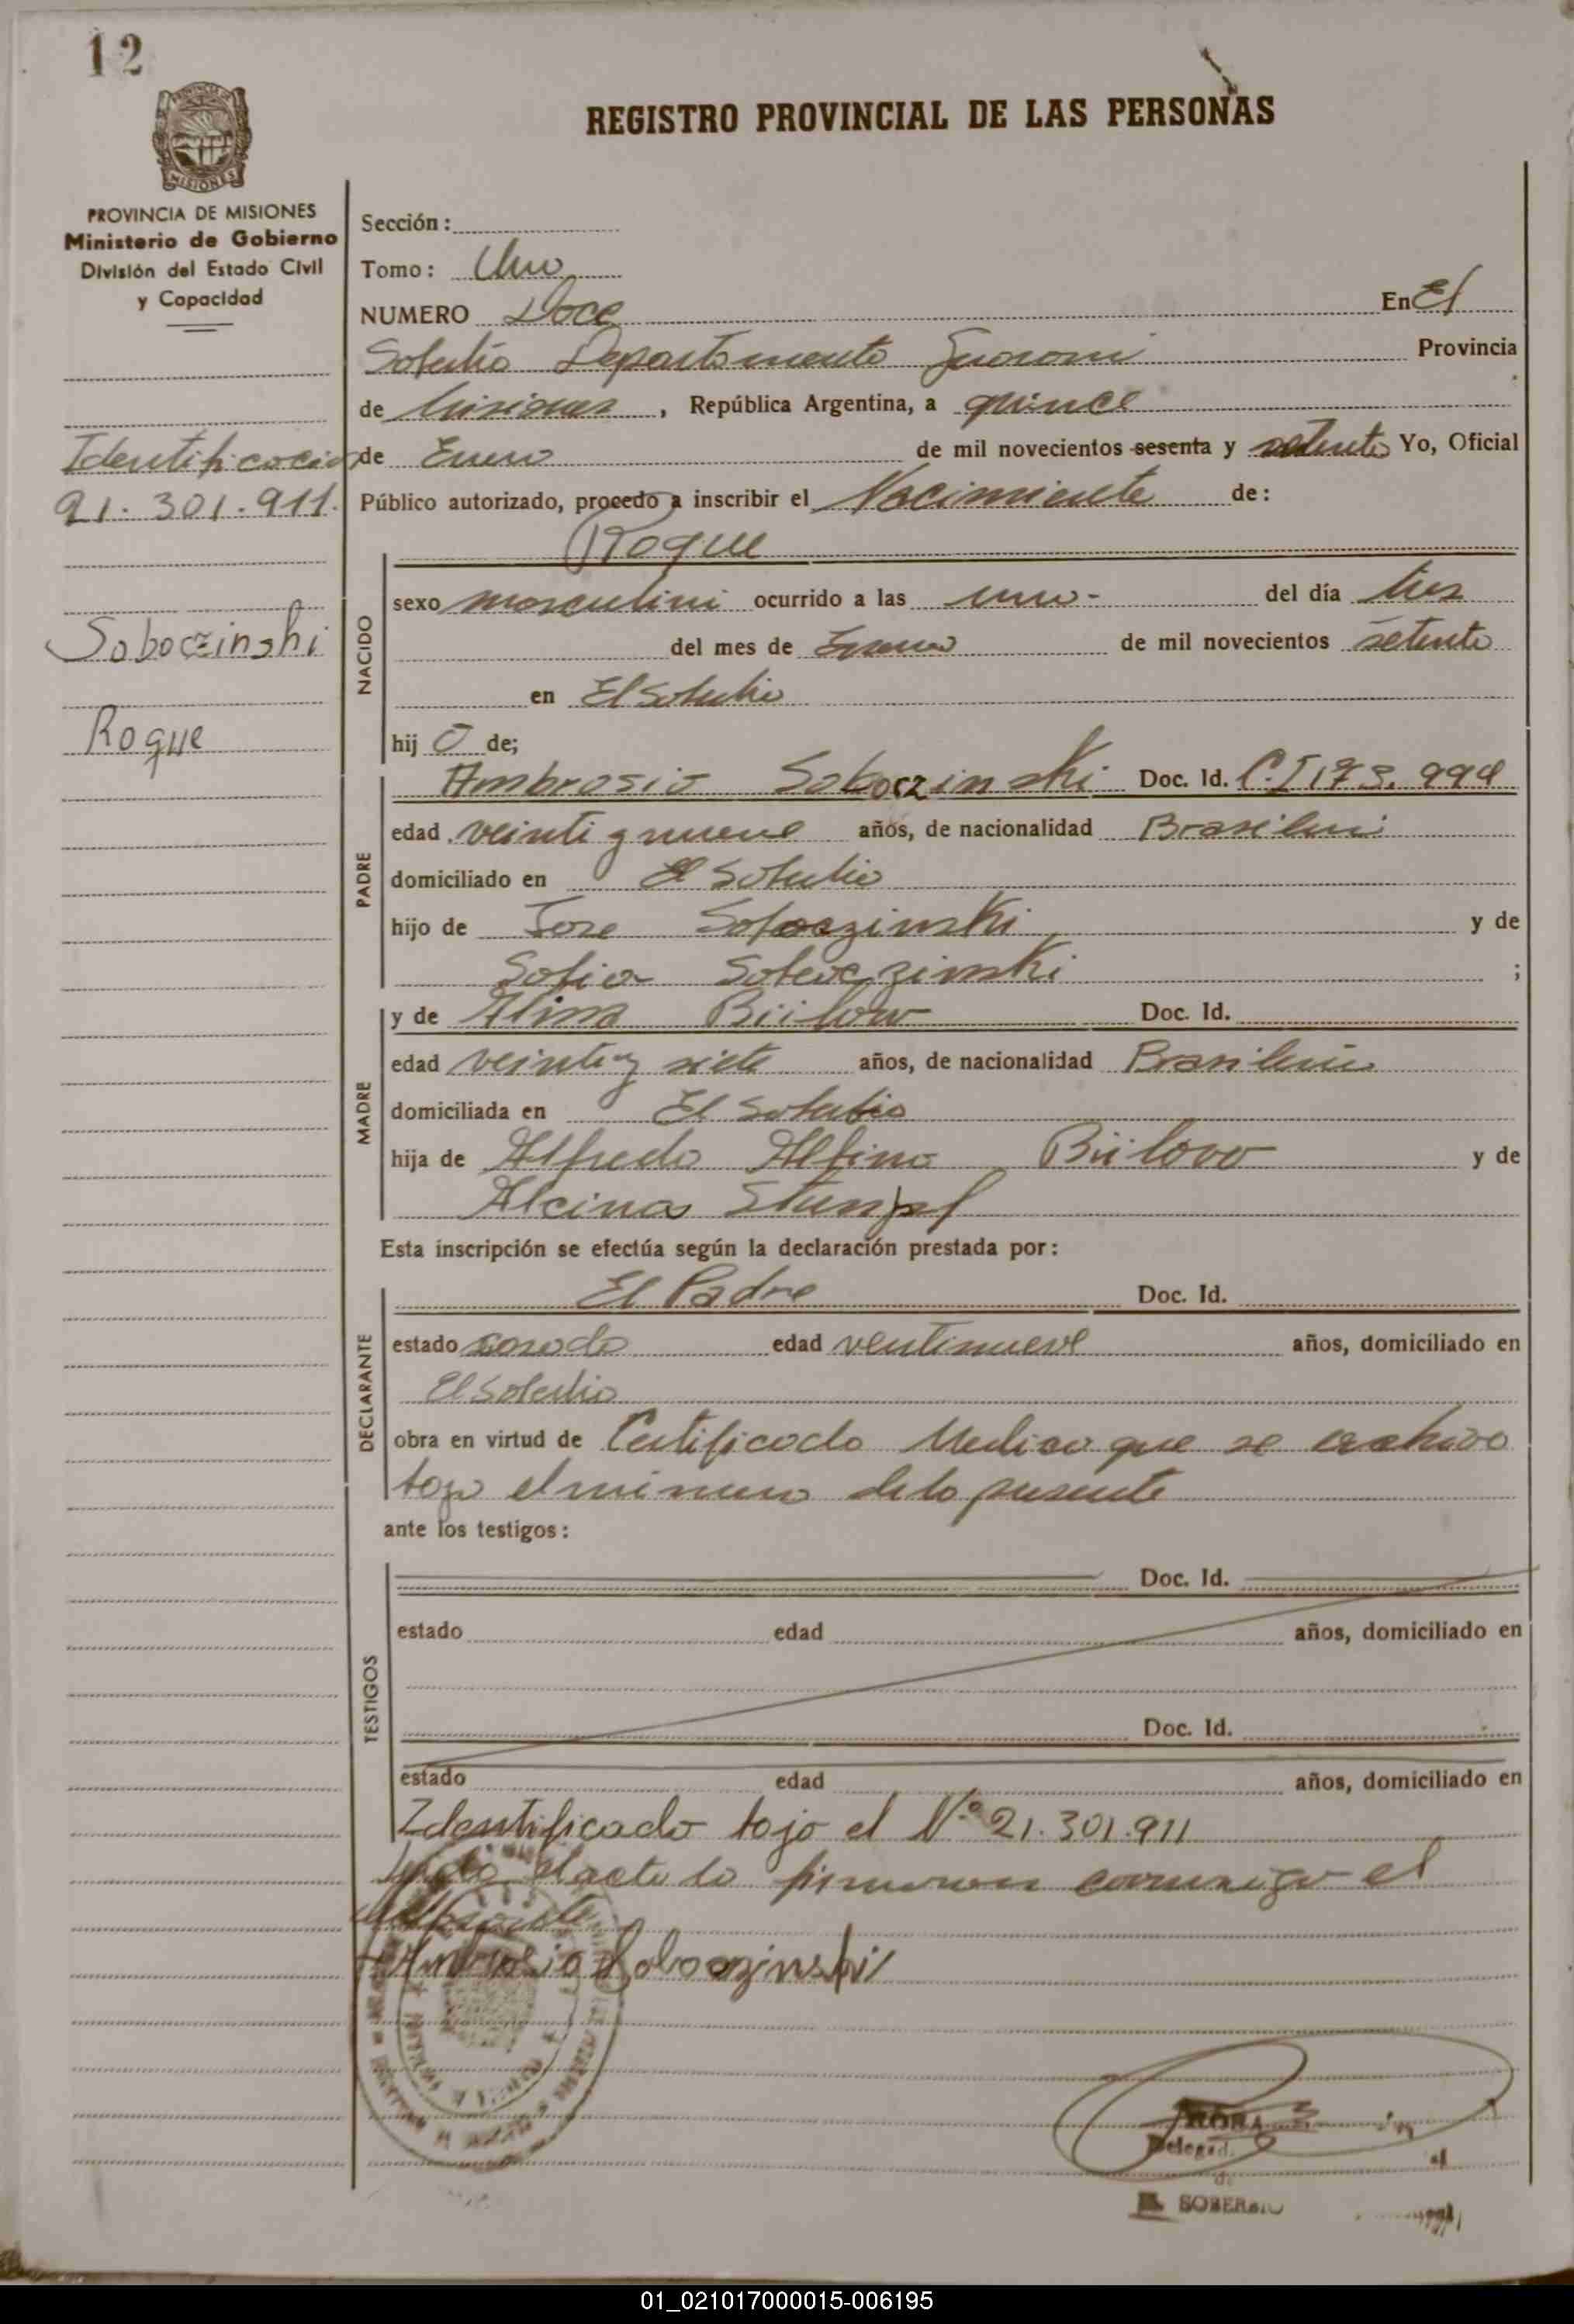 12
REGISTRO PROVINCIAL DE LAS PERSONAS
PROVINCIA DE MISIONES
Ministerio de Gobierno
División del Estado Civil
y Capacidad
Identificacion
21.301.911.
Soboczinski
Roque
Sección:
Tomo: Uno
NUMERO Doce En El
Soberbio Departamento Guarani Provincia
de Misiones, República Argentina, a quince
de Enero de mil novecientos sesenta y setenta Yo, Oficial
Público autorizado, procedo a inscribir el Nacimiento de:
Roque
NACIDO
sexo masculino ocurrido a las uno- del día tres
del mes de Enero de mil novecientos setenta
en El Soberbio
hij o de;
PADRE
Ambrosio Soboczinski Doc. Id. C.I 173.994
edad veinti y nueve años, de nacionalidad Brasilero
domiciliado en El Soberbio
hijo de Jose Soboczinski y de
Sofia Soboczinski ;
MADRE
y de Alina Büilow Doc. Id.
edad veinti y siete años, de nacionalidad Brasilera
domiciliada en El Soberbio
hija de Alfredo Albino Büilow y de
Alcinas Stumpf
Esta inscripción se efectúa según la declaración prestada por:
DECLARANTE
El Padre Doc. Id.
estado casado edad ventinueve años, domiciliado en
El Soberbio
obra en virtud de Certificado Medico que se archivo
bajo el numero de la presente
ante los testigos:
TESTIGOS
Doc. Id.
estado edad años, domiciliado en
Doc. Id.
estado edad años, domiciliado en
Identificado bajo el Nº 21.301.911
el acta la firmaron conmigo el
Ambrosio Soboczinski
Delegad.
SOBERBIO
01_021017000015-006195